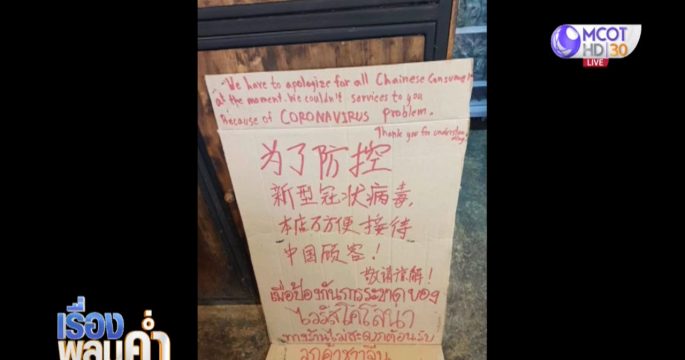 MCOT
HD 30
LIVE
We have to apologize for all Chainese Consumer
at the moment. We couldn't services to you
Because of CORONAVIRUS problem.
Thank you for understan
ding.
为了防控
新型冠状病毒,
本店不方便接待
中国顾客!
敬请谅解!
เพื่อป้องกันการระบาดของ
ไวรัสโคโลน่า
ทางร้านไม่สะดวกต้อนรับ
ลูกค้าชาวจีน
เรื่อง
พลบค่ำ